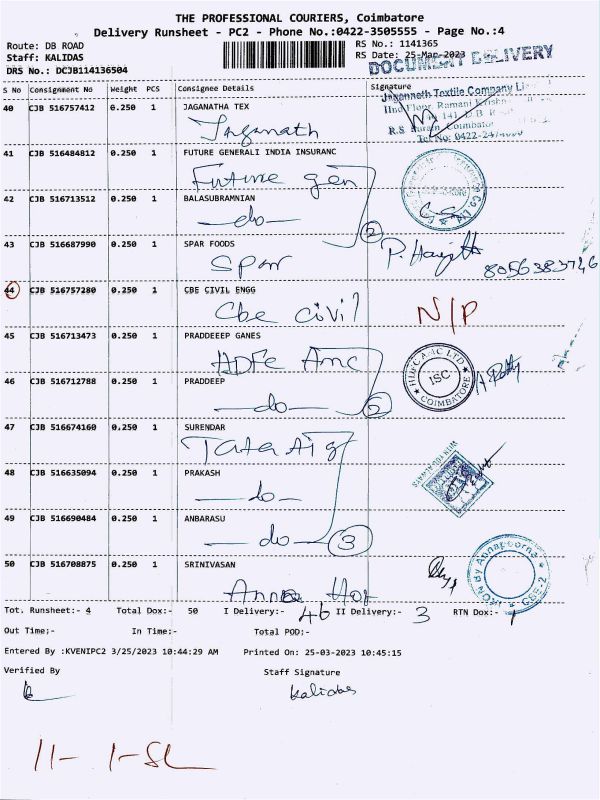 THE PROFESSIONAL COURIERS, Coimbatore
Delivery Runsheet - PC2 - Phone No.:0422-3505555 - Page No.:4
Route: DB ROAD
RS No.: 1141365
Staff: KALIDAS
RS Date: 25-Mar-2023
DRS No.: DCJB114136504
DOCUMENT DELIVERY
S No Consignment No Weight PCS Consignee Details Signature
40 CJB 516757412 0.250 1 JAGANATHA TEX
Jaganath
Jagannath Textile Company
IInd Floor, Ramani Krishna
R.S. Puram, Coimbatore
Tel No: 0422-24
41 CJB 516484812 0.250 1 FUTURE GENERALI INDIA INSURANC
Future gen
42 CJB 516713512 0.250 1 BALASUBRAMNIAN
—do— 2
43 CJB 516687990 0.250 1 SPAR FOODS
Spar
8056383746
44 CJB 516757280 0.250 1 CBE CIVIL ENGG
Cbe civil N/P
45 CJB 516713473 0.250 1 PRADDEEEP GANES
HDFC Amc
HDFC AMC LTD
ISC
COIMBATORE
46 CJB 516712788 0.250 1 PRADDEEP
—do— 2
47 CJB 516674160 0.250 1 SURENDAR
Tata Aig
48 CJB 516635094 0.250 1 PRAKASH
—do—
49 CJB 516690484 0.250 1 ANBARASU
—do— 3
50 CJB 516708875 0.250 1 SRINIVASAN
By Annapoorna
CBE-2
Tot. Runsheet:- 4 Total Dox:- 50 I Delivery:- 46 II Delivery:- 3 RTN Dox:- 1
Out Time:- In Time:- Total POD:-
Entered By :KVENIPC2 3/25/2023 10:44:29 AM Printed On: 25-03-2023 10:45:15
Verified By Staff Signature
Kalidas